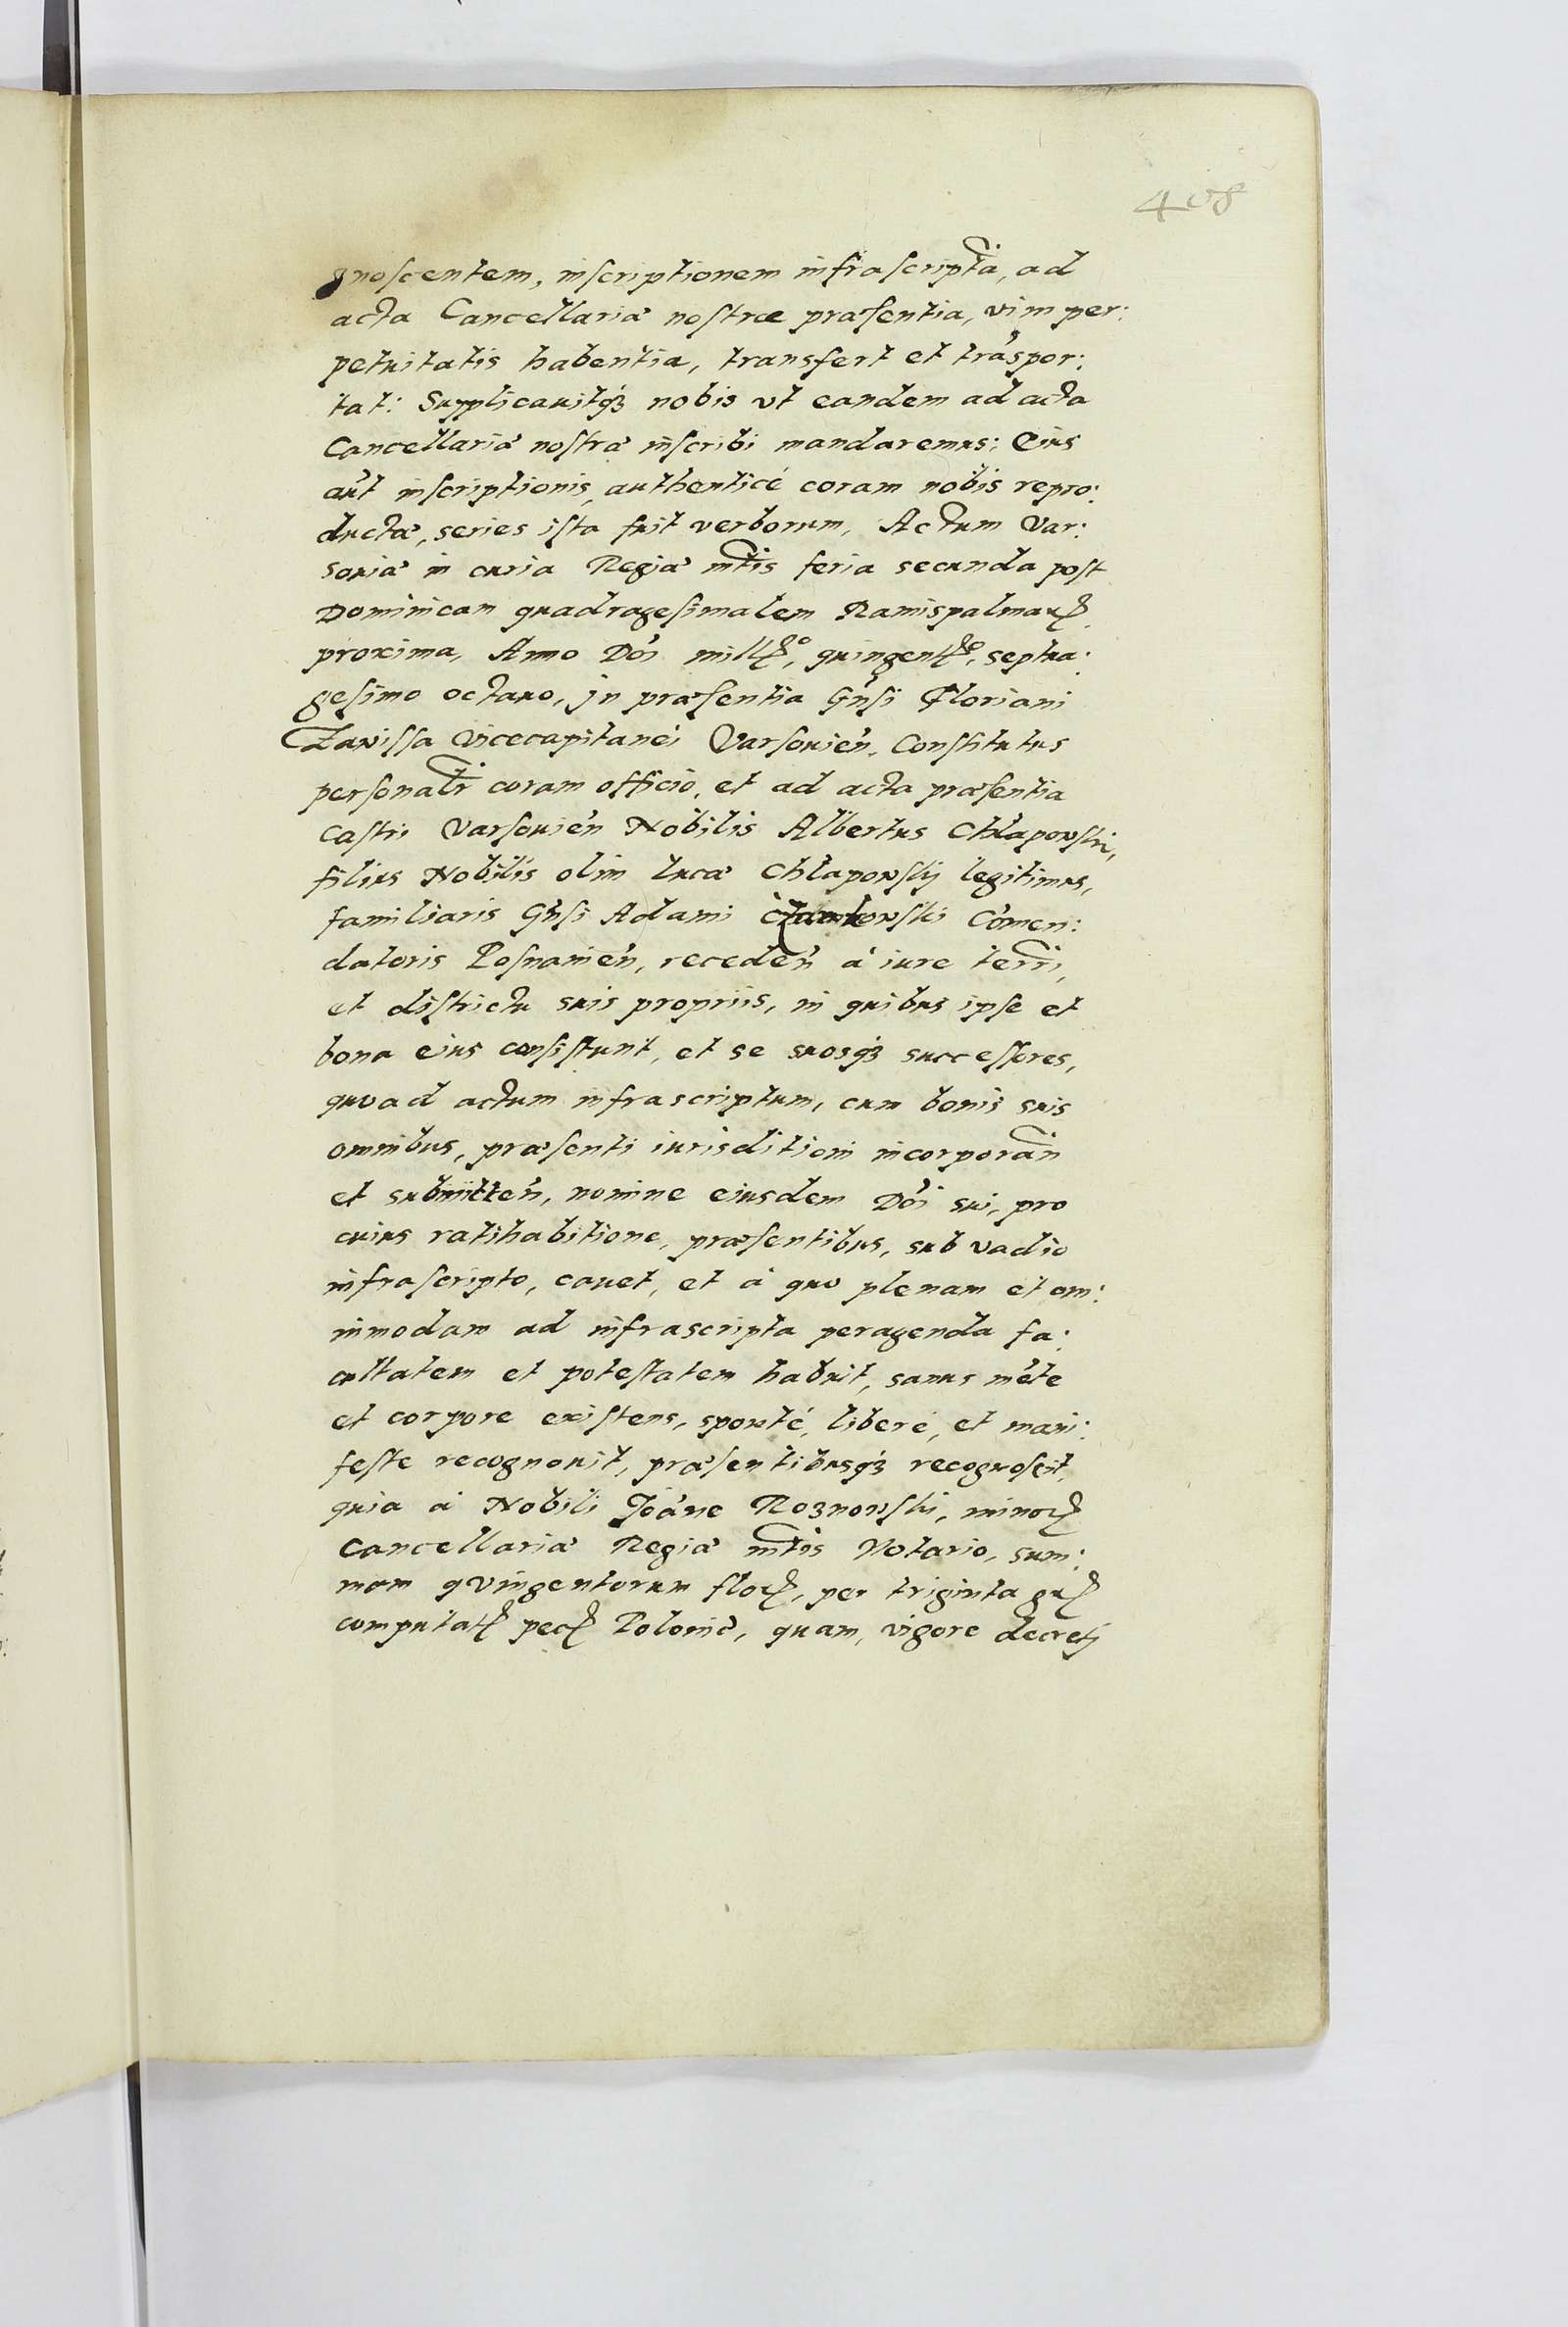 408
gnoscentem, inscriptionem infrascriptã, ad
acta Cancellariæ nostræ præsentia, vim per:
petuitatis habentia, transfert et trãspor:
tat: Supplicauitq́ꝫ nobis vt eandem ad acta
Cancellariæ nostræ inscribi mandaremus: Eius
aũt inscriptionis, authenticé coram nobis repro:
ductæ, series ista fuit verborum, Actum Var:
souiæ in curia Regiæ mtis feria secunda post
Dominicam quadragesimalem Ramispalmarꝝ
proxima, Anno Dñi millꝝo, quingentꝝo, septua:
gesimo octauo, jn præsentia Gñsi Floriani
Zawissa Vicecapitanei Varsouień. Constitutus
personalr̃ coram officio, et ad acta præsentia
Castri Varsouień Nobilis Albertus Chlapowski,
filius Nobilis olim Lucæ Chlapowskij legitimus,
familiaris Gñsi Adami Czarnkowski Cõmen:
datoris Posnanień, recedeń á iure terri,
et districtu suis propriis, in quibus ipse et
bona eius consistunt, et se suosq́ꝫ successores,
quoad actum infrascriptum, cum bonis suis
omnibus, præsenti iurisditioni incorporań
et submitteń, nomine eiusdem Dñi sui, pro
cuius ratihabitione, præsentibus, sub vadio
infrascripto, cauet, et á quo plenam et om:
nimodam ad infrascripta peragenda fa:
cultatem et potestatem habuit, sanus mẽte
et corpore existens, sponté, liberé, et mani:
feste recognouit, præsentibusq́ꝫ recognoscit,
quia á Nobili Joãne Roznowski, minorꝝ
Cancellariæ Regiæ mtis Notario, sum:
mam qvingentorum florꝝ, per triginta grꝝ
computatꝝ pecꝝ Polonic̃, quam, vigore decreti